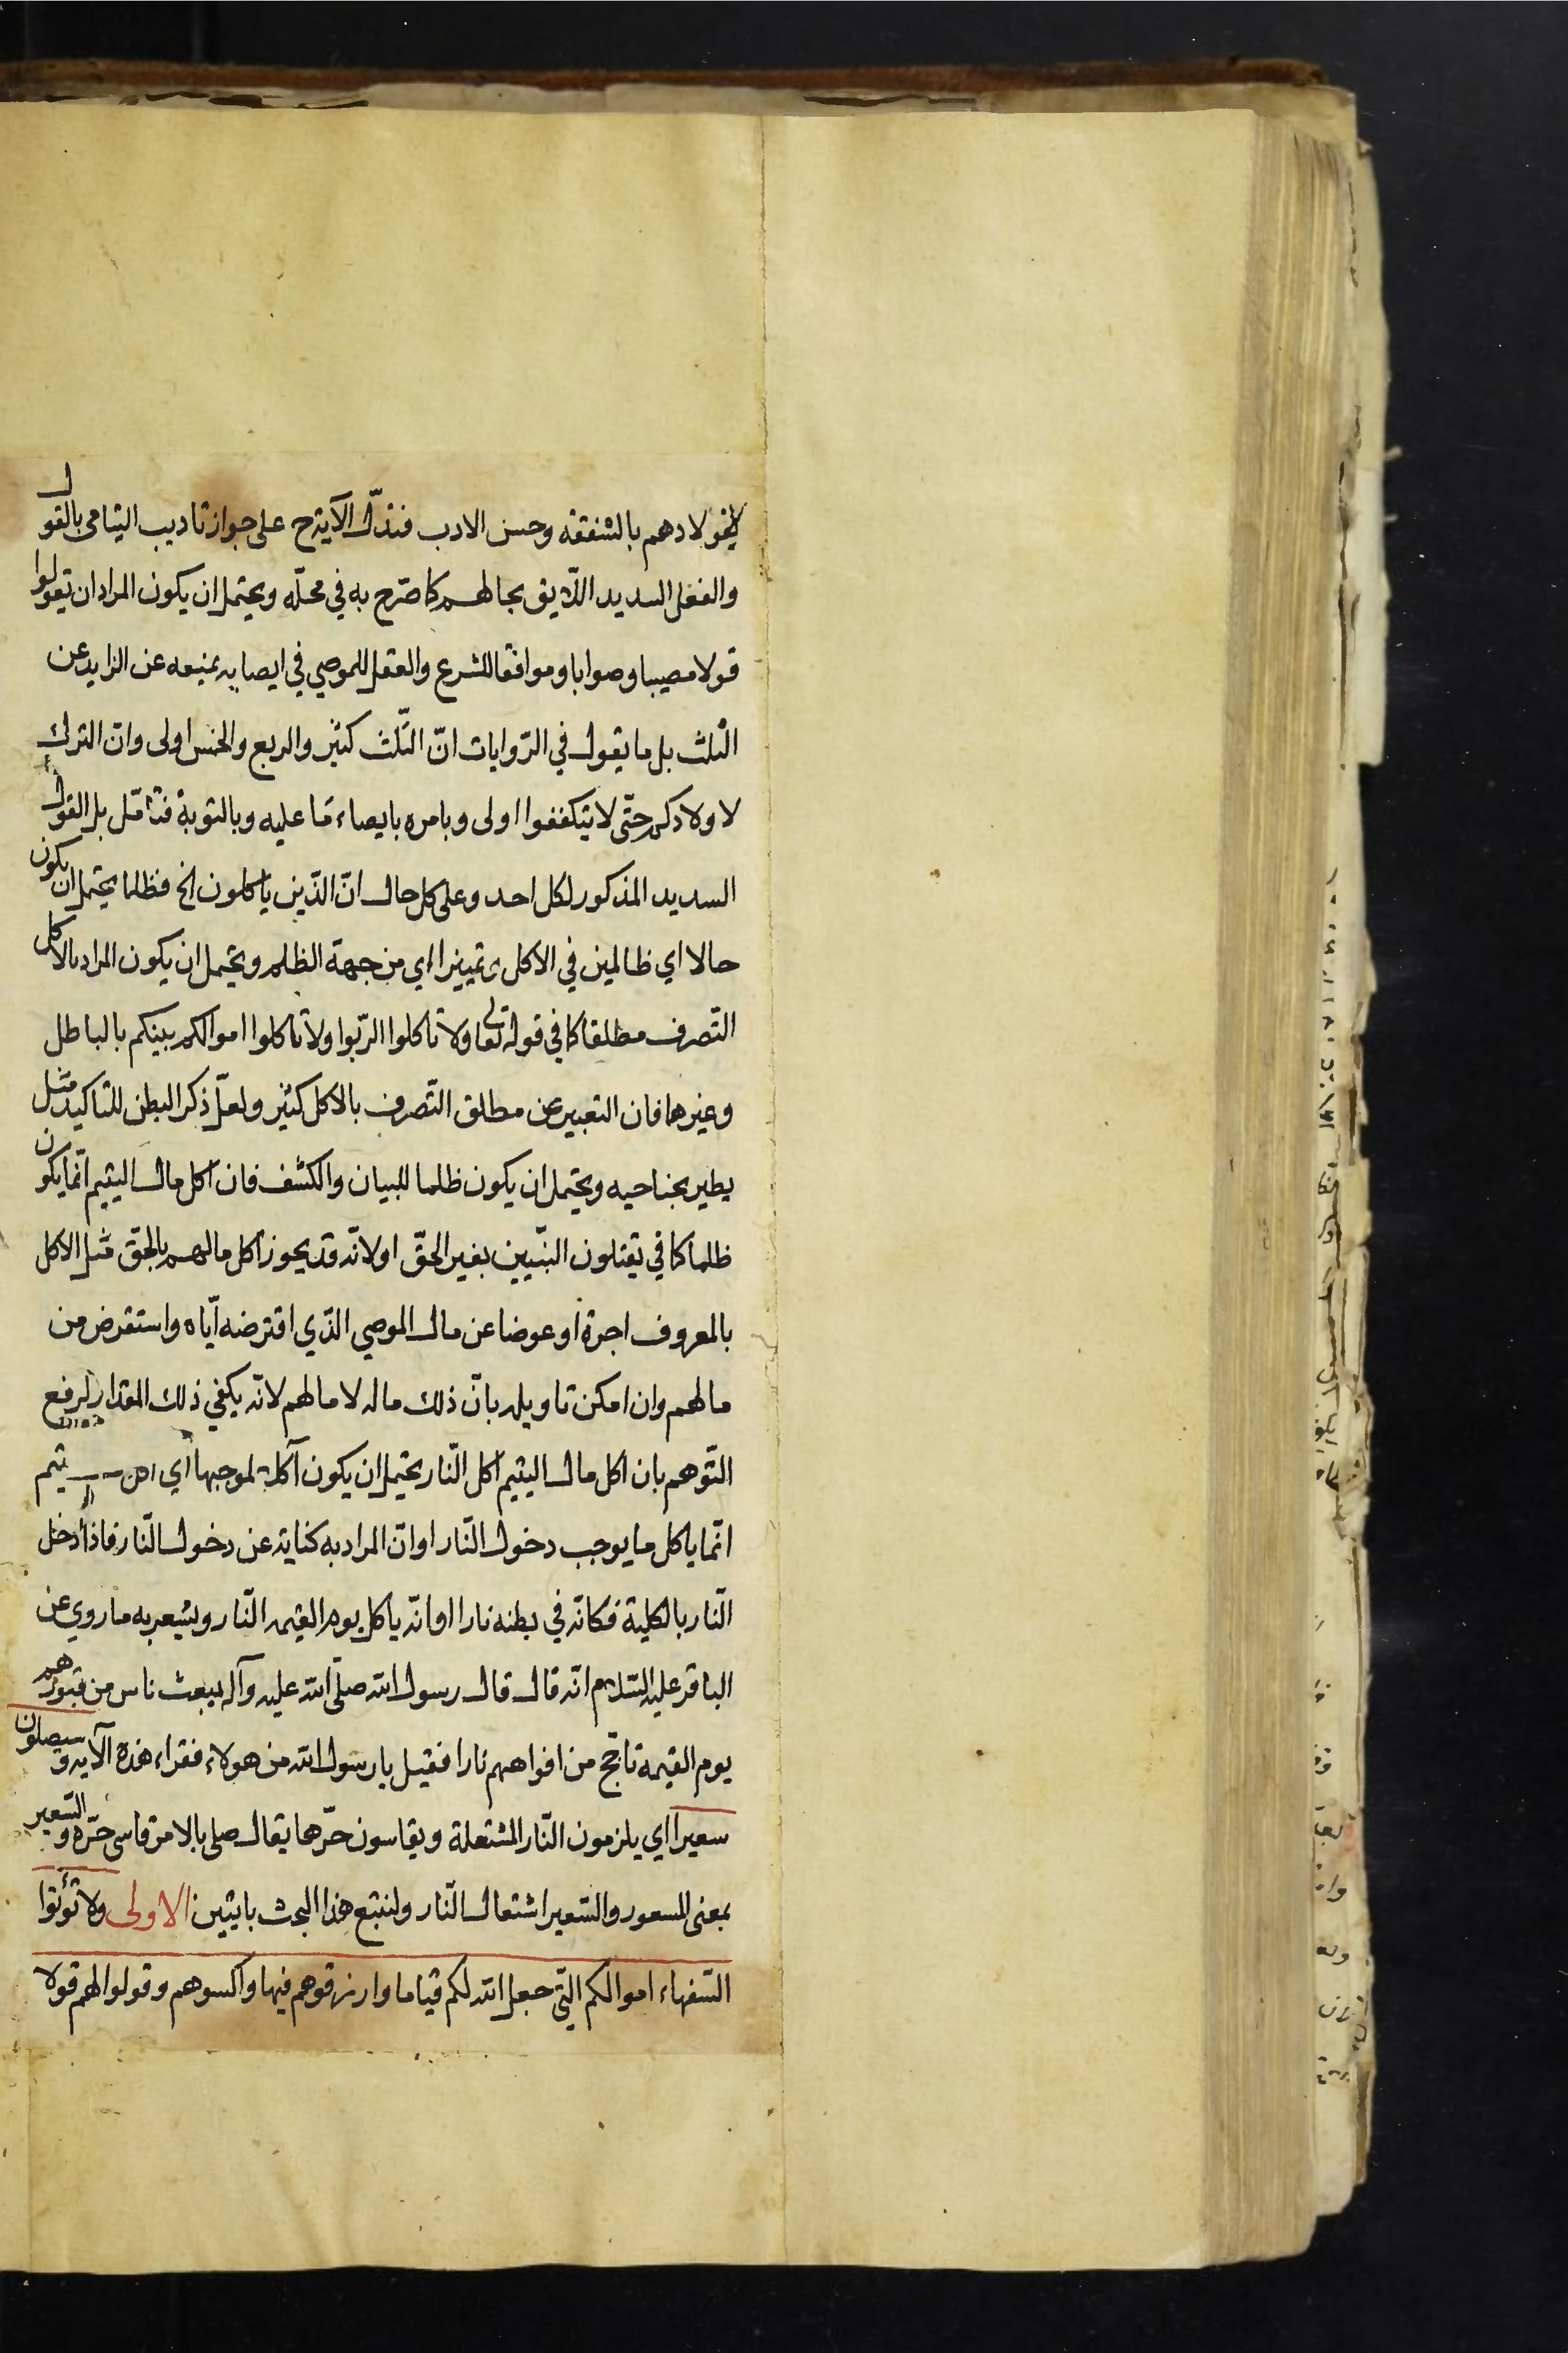 لاولادهم بالشفقه وحسن الادب فتدلّ الآية ح على جواز تاديب اليتامى بالقول
والفعل السديد اللّايق بحالهم كما صرّح به في محلّه ويحتمل ان يكون المراد ان تقولوا
قولا مصيبا وصوابا وموافقا للشرع والعقل للموصي في ايصايه بمنعه عن الزايد عن
الثلث بل ما يقول في الرّوايات انّ الثّلث كثير والربع والخمس اولى وانّ الترك
لاولادكم حتّى لا يتكففوا اولى وبامره بايصاء ما عليه وبالتوبة فتامّل بل القول
السديد المذكور لكل احد وعلى كل حال انّ الّذين ياكلون الخ فظلما يحتمل ان يكون
حالا اي ظالمين في الاكل وتمييزا اي من جهة الظلم ويحتمل ان يكون المراد بالاكل
التّصرف مطلقا كما في قوله تعا ولا تاكلوا الرّبوا ولا تاكلوا اموالكم بينكم بالباطل
وغيرهما فان التعبير عن مطلق التّصرف بالاكل كثير ولعلّ ذكر البطن للتاكيد مثل
يطير بجناحيه ويحتمل ان يكون ظلما للبيان والكشف فان اكل مال اليتيم انّما يكون
ظلما كما في يقتلون النبّيين بغير الحقّ اولانّه قد يجوز اكل مالهم بالحق مثل الاكل
بالمعروف اجرة او عوضا عن مال الموصي الّذي اقترضه ايّاه واستقرض من
مالهم وان امكن تاويله بانّ ذلك ماله لا مالهم لانّه يكفي ذلك المقدار لرفع
التّوهم بان اكل مال اليتيم اكل النّار يحتمل ان يكون آكلا لموجبها اي يتيم
انّما ياكل ما يوجب دخول النّار او انّ المراد به كناية عن دخول النّار فاذا دخل
النّار بالكلية فكانّه في بطنه نارا او انّه ياكل يوم القيمه النّار ويشعر به ما روي عن
الباقر عليه السّلام انّه قال قال رسول الله صلّى الله عليه وآله يبعث ناس من قبورهم
يوم القيمة تاجّج من افواههم نارا فقيل يا رسول الله من هولاء فقراء هذه الآيه وسيصلون
سعيرا اي يلزمون النّار المشتعلة ويقاسون حرّها يقال صلى بالامر قاسى حرّه والسّعير
بمعنى المسعور والسّعير اشتعال النّار ولنتبع هذا البحث بايتين الاولى ولا تؤتوا
السّفهاء اموالكم الّتي جعل الله لكم قياما وارزقوهم فيها واكسوهم وقولوا لهم قولا